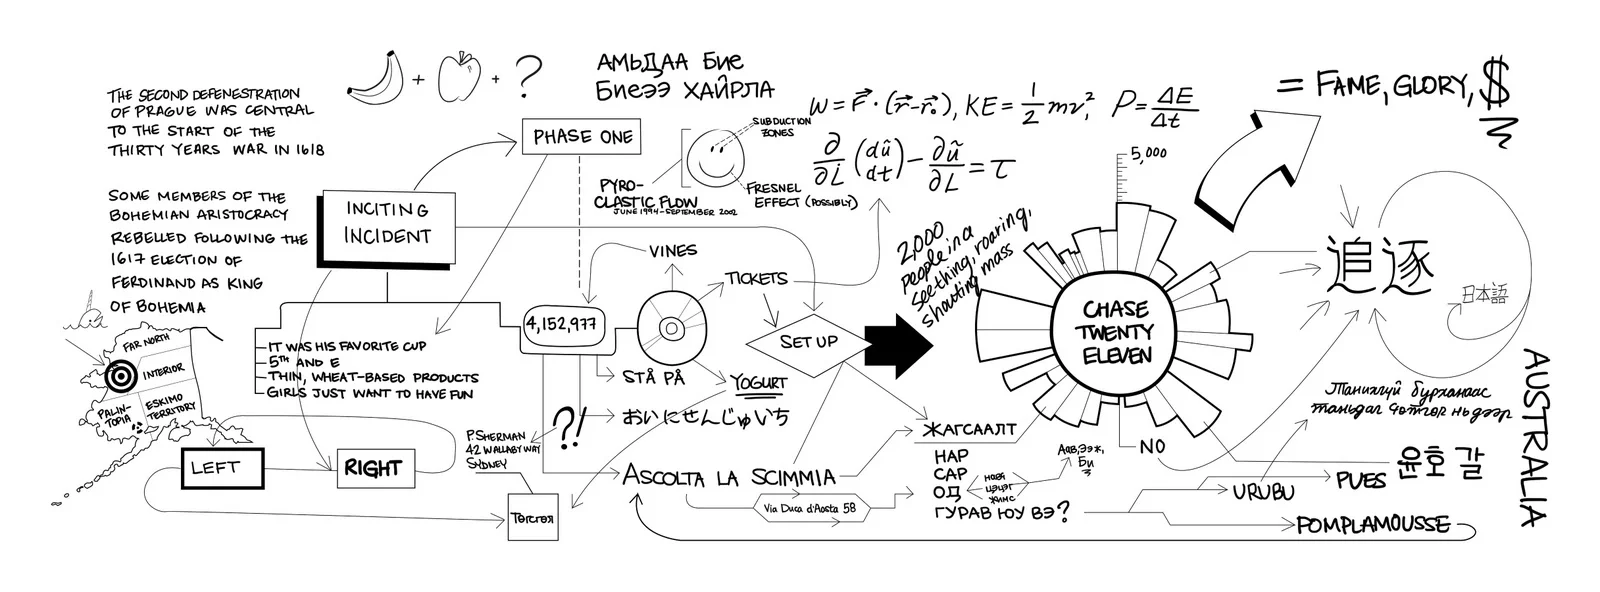 THE SECOND DEFENESTRATION
OF PRAGUE WAS CENTRAL
TO THE START OF THE
THIRTY YEARS WAR IN 1618
SOME MEMBERS OF THE
BOHEMIAN ARISTOCRACY
REBELLED FOLLOWING THE
1617 ELECTION OF
FERDINAND AS KING
OF BOHEMIA
+ + ?
АМЬДАА БИЕ
БИЕЭЭ ХАЙРЛА
PHASE ONE
INCITING
INCIDENT
SUBDUCTION
ZONES
PYRO-
CLASTIC FLOW
JUNE 1994-SEPTEMBER 2002
FRESNEL
EFFECT (POSSIBLY)
W = F⃗ · (r⃗ - r⃗₀), KE = 1/2 mv², P = ΔE/Δt
∂/∂L̇ (dũ/dt) - ∂ũ/∂L = τ
= FAME, GLORY, $
5,000
2,000
people in a
seething, roaring,
shouting mass
VINES
TICKETS
4,152,977
SET UP
CHASE
TWENTY
ELEVEN
追逐
日本語
FAR NORTH
INTERIOR
PALIN-
TOPIA
ESKIMO
TERRITORY
IT WAS HIS FAVORITE CUP
5TH AND E
THIN, WHEAT-BASED PRODUCTS
GIRLS JUST WANT TO HAVE FUN
STÅ PÅ
YOGURT
?!
おいにせんじゅいち
P. SHERMAN
42 WALLABY WAY
SYDNEY
LEFT
RIGHT
Төгсгөл
ASCOLTA LA SCIMMIA
Via Duca d'Aosta 58
ЖАГСААЛТ
НАР
САР
ОД
ГУРАВ ЮУ ВЭ?
цэцэг
жимс
Аав, ээж,
Би
NO
Танихгүй бурханаас
таньдаг чөтгөр нь дээр
윤호 갈
PUES
URUBU
POMPLAMOUSSE
AUSTRALIA